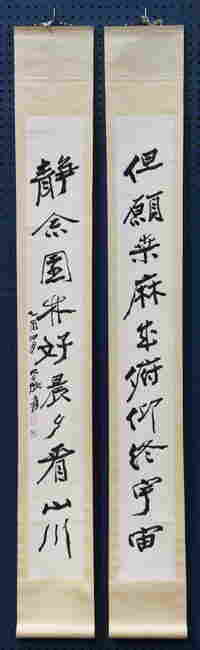 但願桒麻成俯仰終宇宙
靜念園林好晨夕看山川